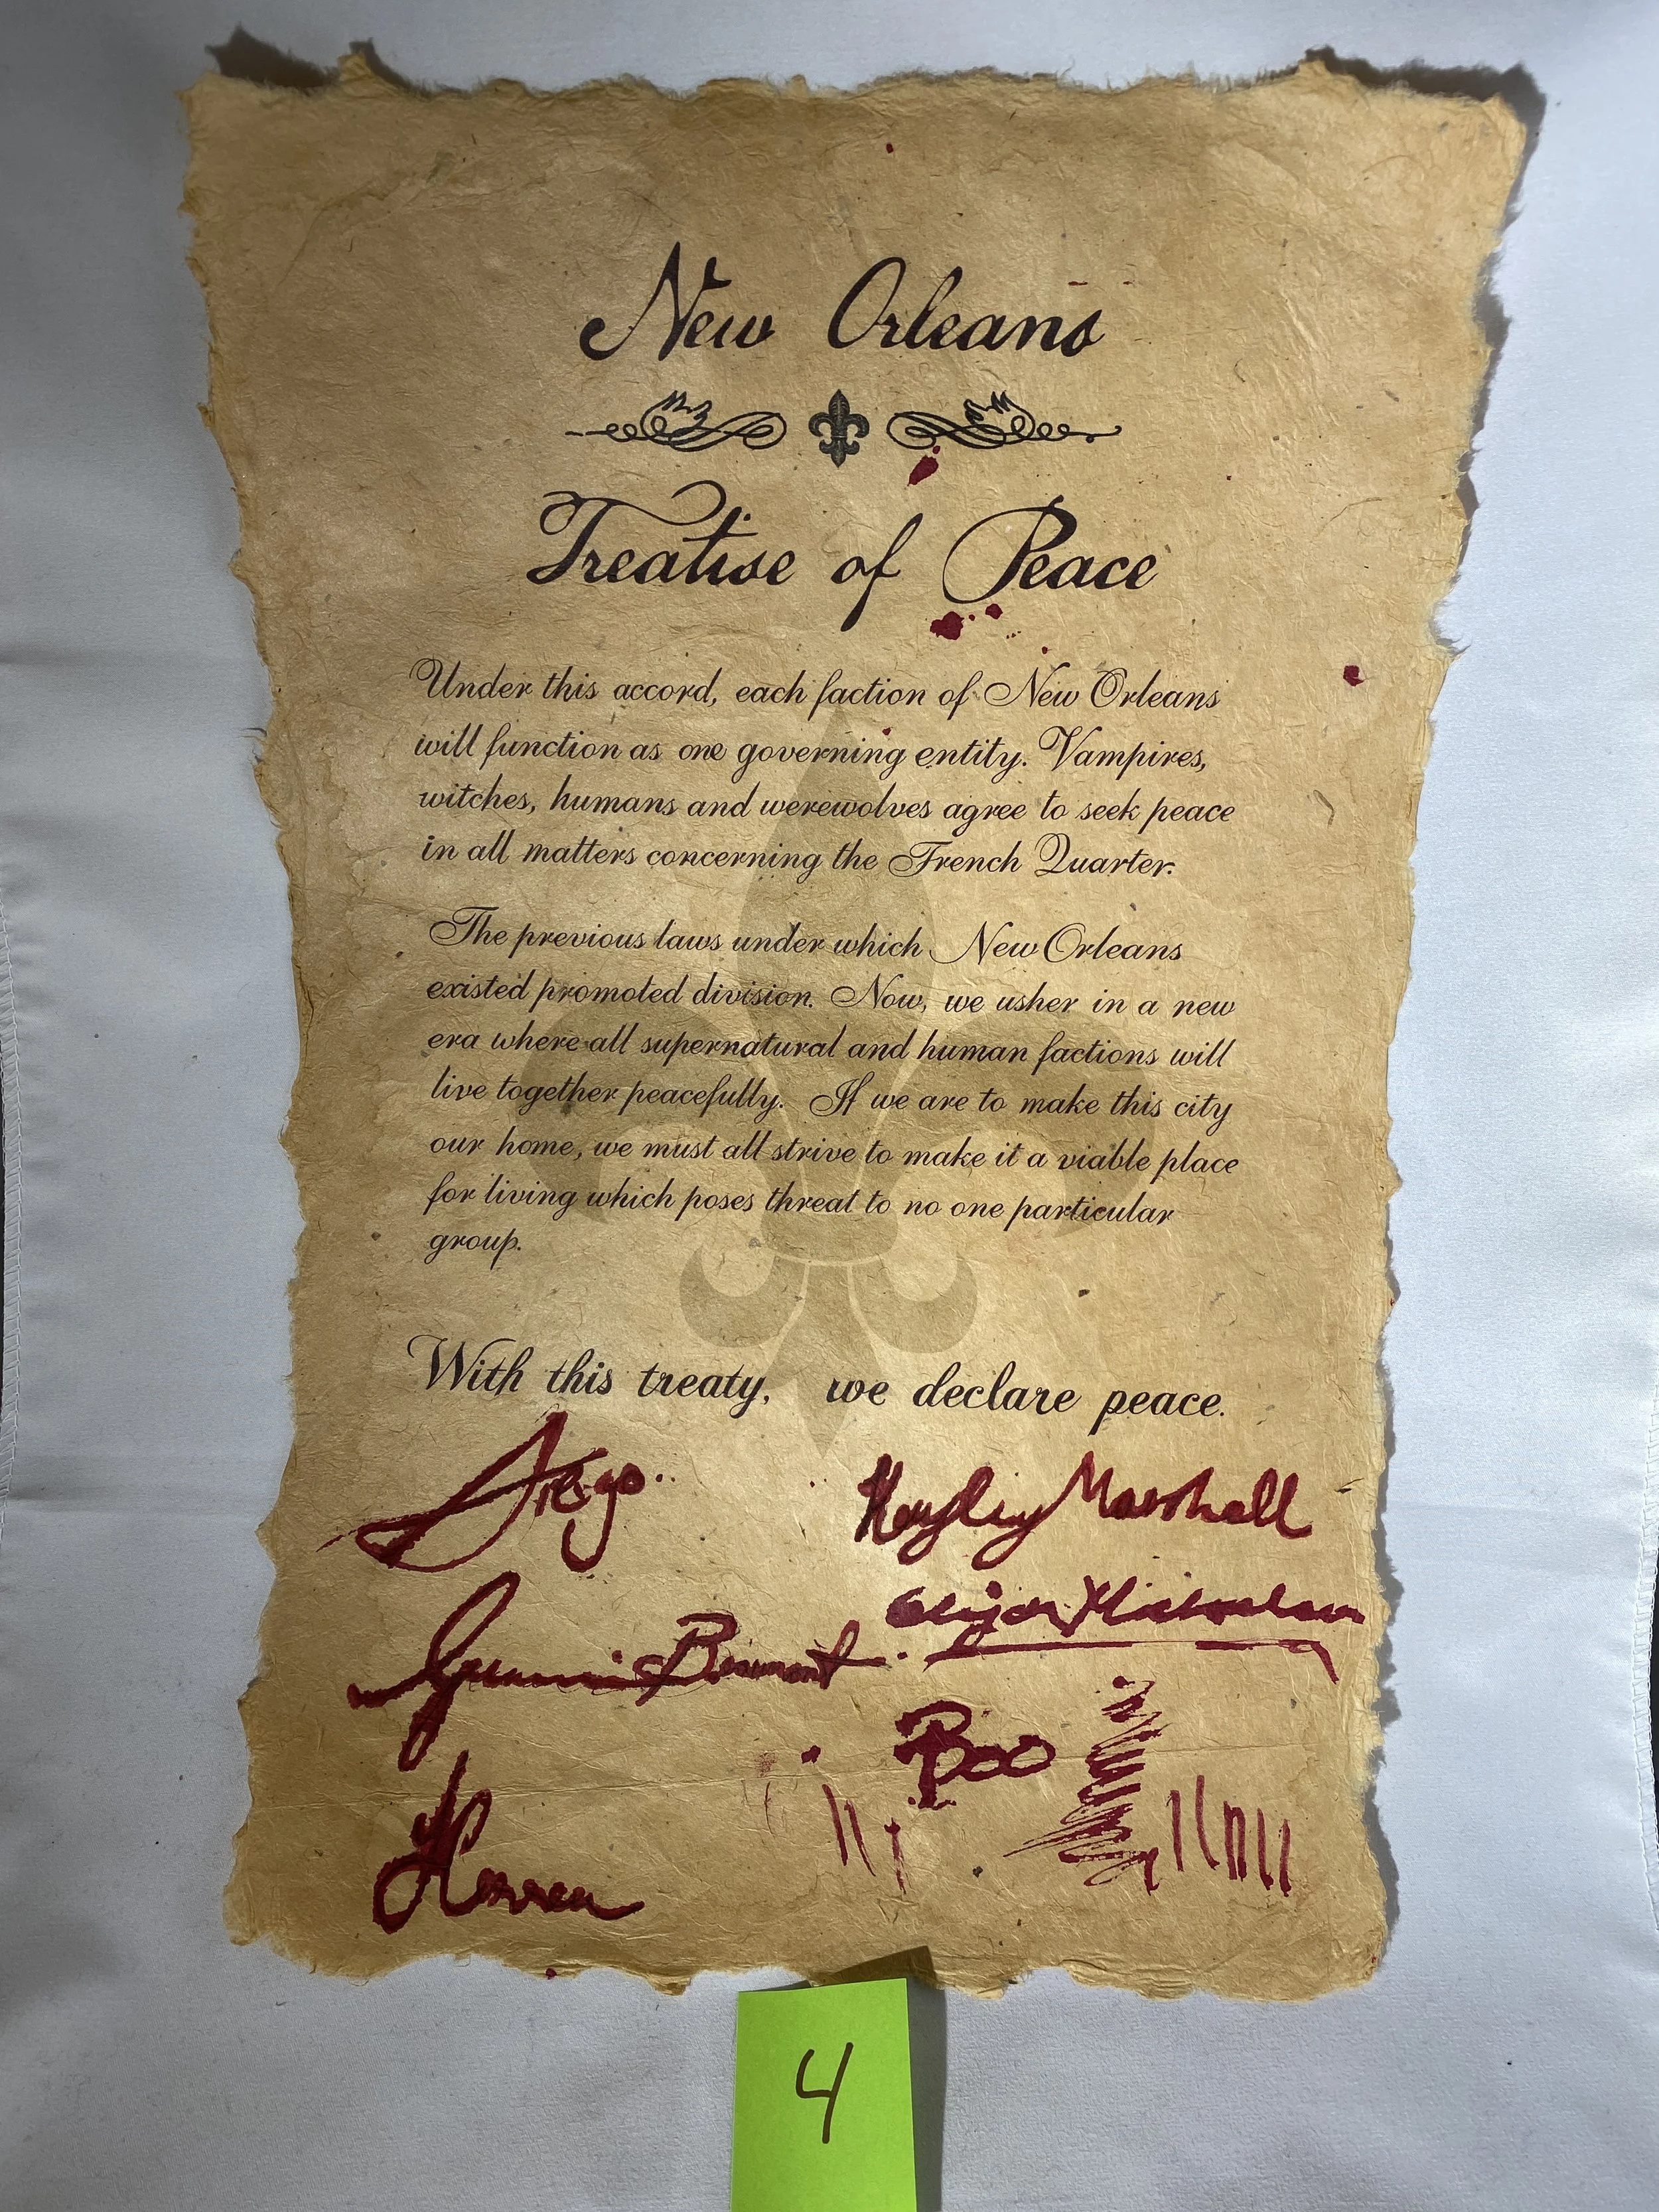 New Orleans
Treatise of Peace
Under this accord, each faction of New Orleans
will function as one governing entity. Vampires,
witches, humans and werewolves agree to seek peace
in all matters concerning the French Quarter.
The previous laws under which New Orleans
existed promoted division. Now, we usher in a new
era where all supernatural and human factions will
live together peacefully. If we are to make this city
our home, we must all strive to make it a viable place
for living which poses threat to no one particular
group.
With this treaty, we declare peace.
Diego
Hayley Marshall
Elijah Mikaelson
Beaumont
Boo
4